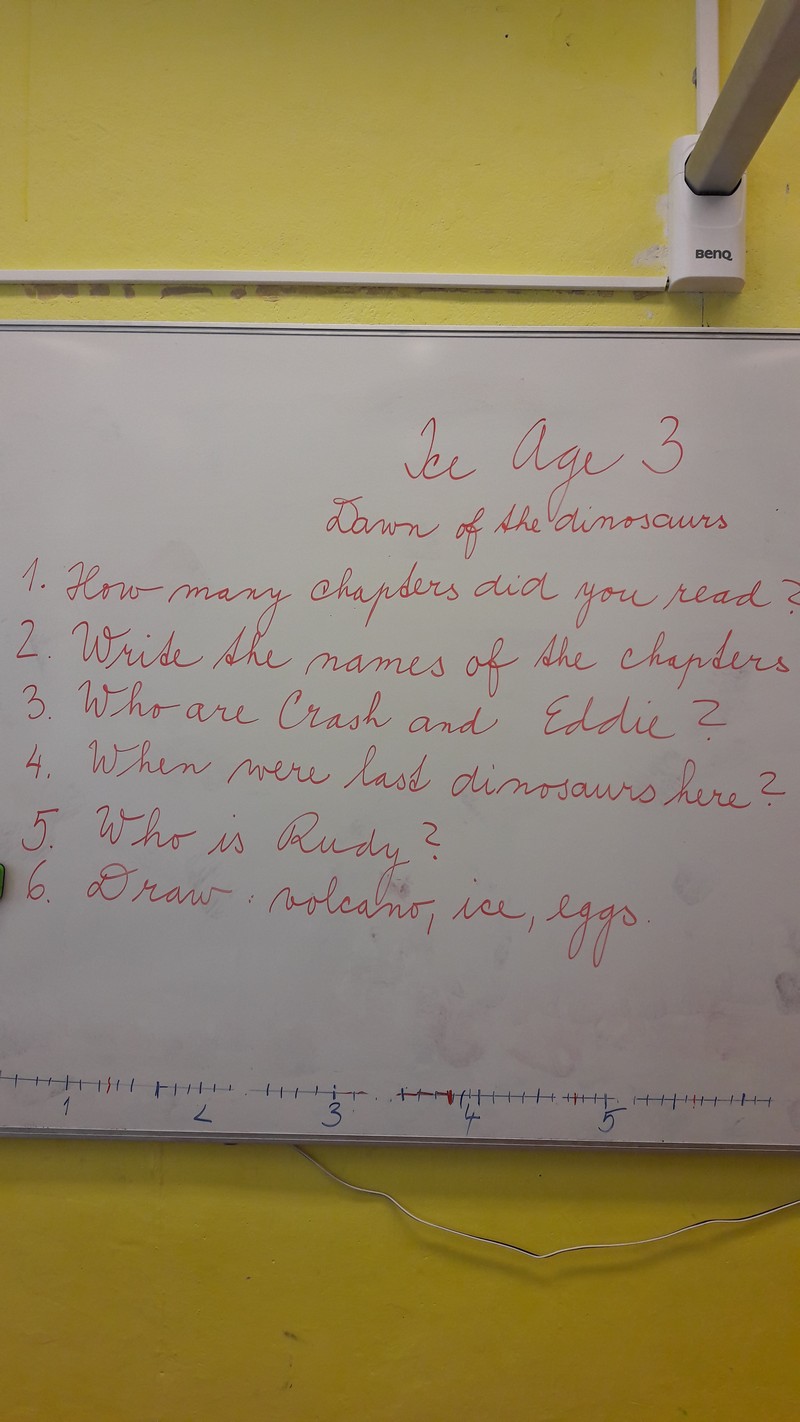 BENQ
Ice Age 3
Dawn of the dinosaurs
1. How many chapters did you read?
2. Write the names of the chapters
3. Who are Crash and Eddie?
4. When were last dinosaurs here?
5. Who is Rudy?
6. Draw: volcano, ice, eggs.
1 2 3 4 5